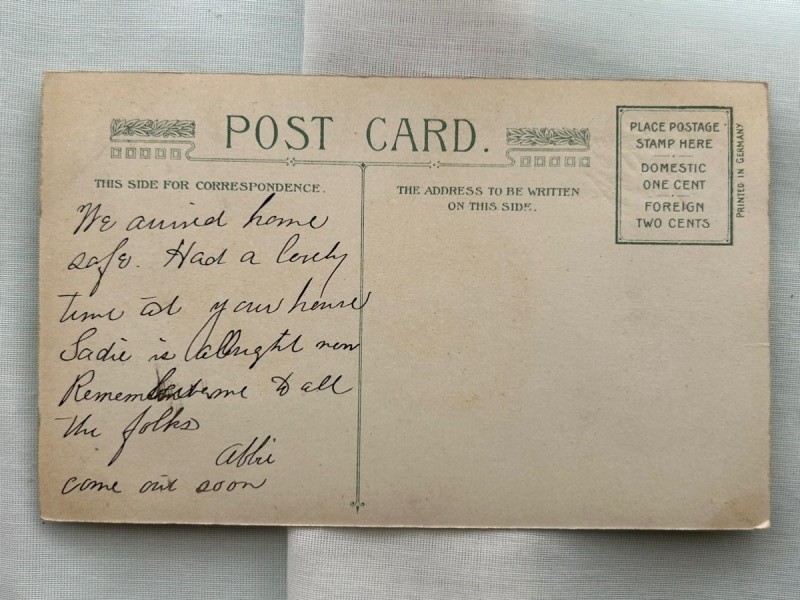 POST CARD.
THIS SIDE FOR CORRESPONDENCE.
THE ADDRESS TO BE WRITTEN
ON THIS SIDE.
PLACE POSTAGE
STAMP HERE
DOMESTIC
ONE CENT
FOREIGN
TWO CENTS
PRINTED IN GERMANY
We arrived home
safe. Had a lovely
time at your house
Sadie is allright now
Remember me to all
the folks
Abbie
come out soon